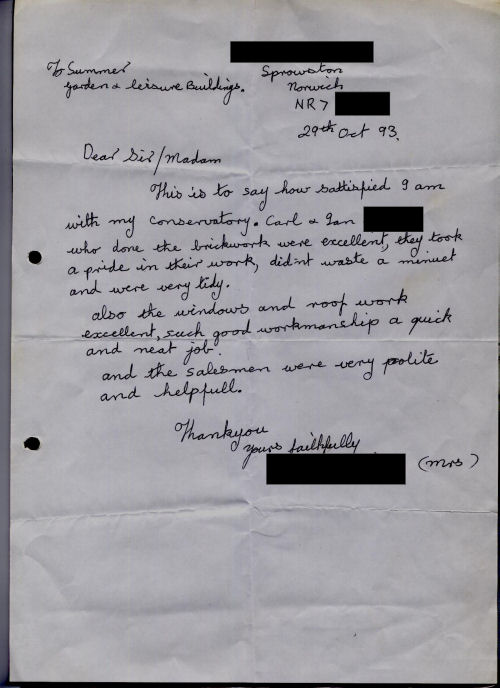 To Summer
garden & leisure Buildings.
Sprowston
Norwich
NR7
29th Oct 93.
Dear Sir/Madam
This is to say how sattisfied I am
with my conservatory. Carl & Ian
who done the brickwork were excellent, they took
a pride in their work, did'nt waste a minuet
and were very tidy.
also the windows and roof work
excellent, such good workmanship a quick
and neat job.
and the salesmen were very polite
and helpfull.
Thankyou
yours faithfully
(Mrs)